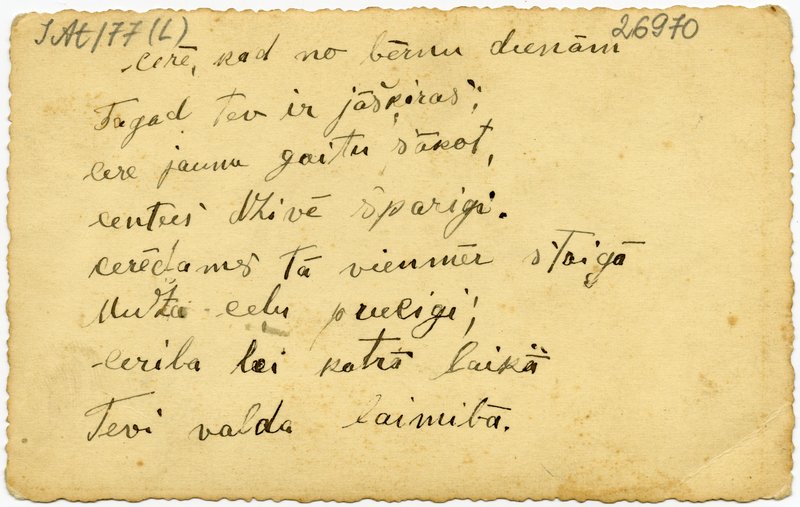 IAt/77(L) 26970
Cerē, kad no bērnu dienām
Tagad tev ir jāšķiras;
Cerē jaunu gaitu sākot,
Centies dzīvē sparigi.
Cerēdams tā vienmēr staigā
Muža ceļu priecigi;
Ceriba lai katrā laikā
Tevi valda laimibā.